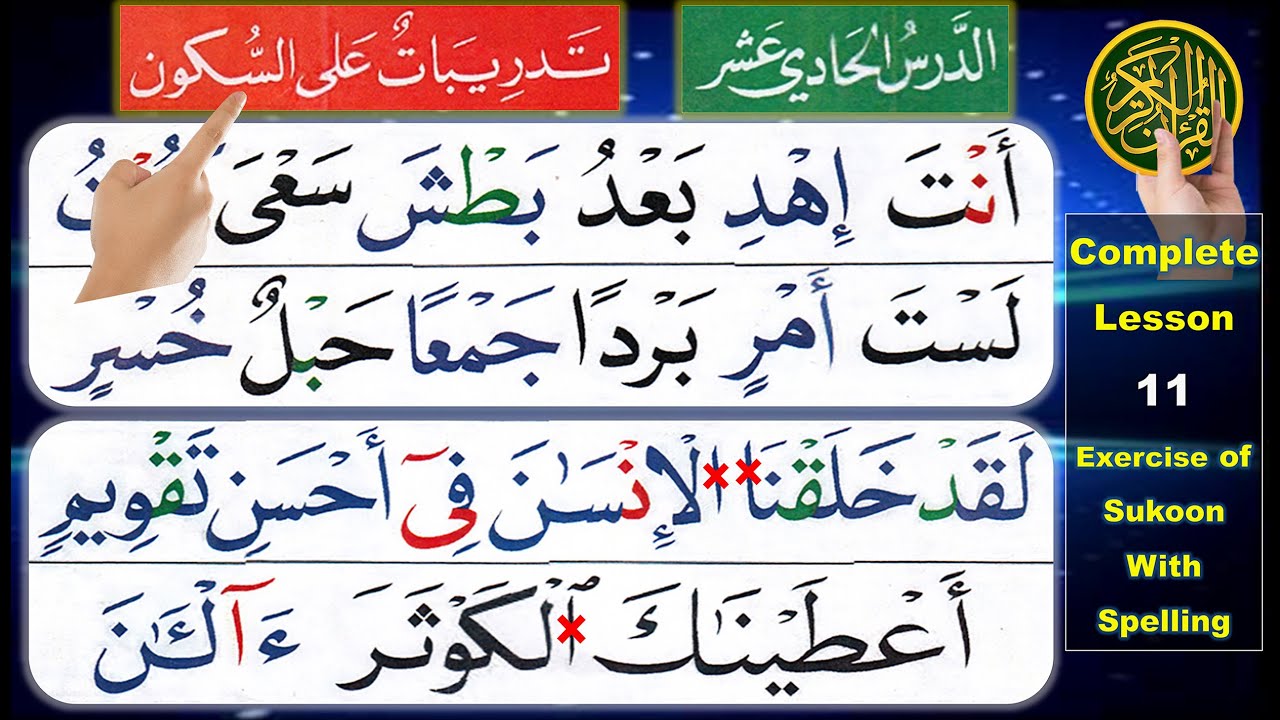 الدَّرسُ الحَادِي عَشر
تَدرِيبَاتٌ عَلى السُّكون
القرآن الكريم
أَنْتَ إِهْدِ بَعْدُ بَطْشَ سَعْىَ
لَسْتَ أَمْرٍ بَرْدًا جَمْعًا حَبْلٌ خُسْرٍ
لَقَدْ خَلَقْنَا الْإِنْسَـٰنَ فِىٓ أَحْسَنِ تَقْوِيمٍ
أَعْطَيْنَـٰكَ ٱلْكَوْثَرَ ءَآلْـَٔـٰنَ
Complete
Lesson
11
Exercise of
Sukoon
With
Spelling